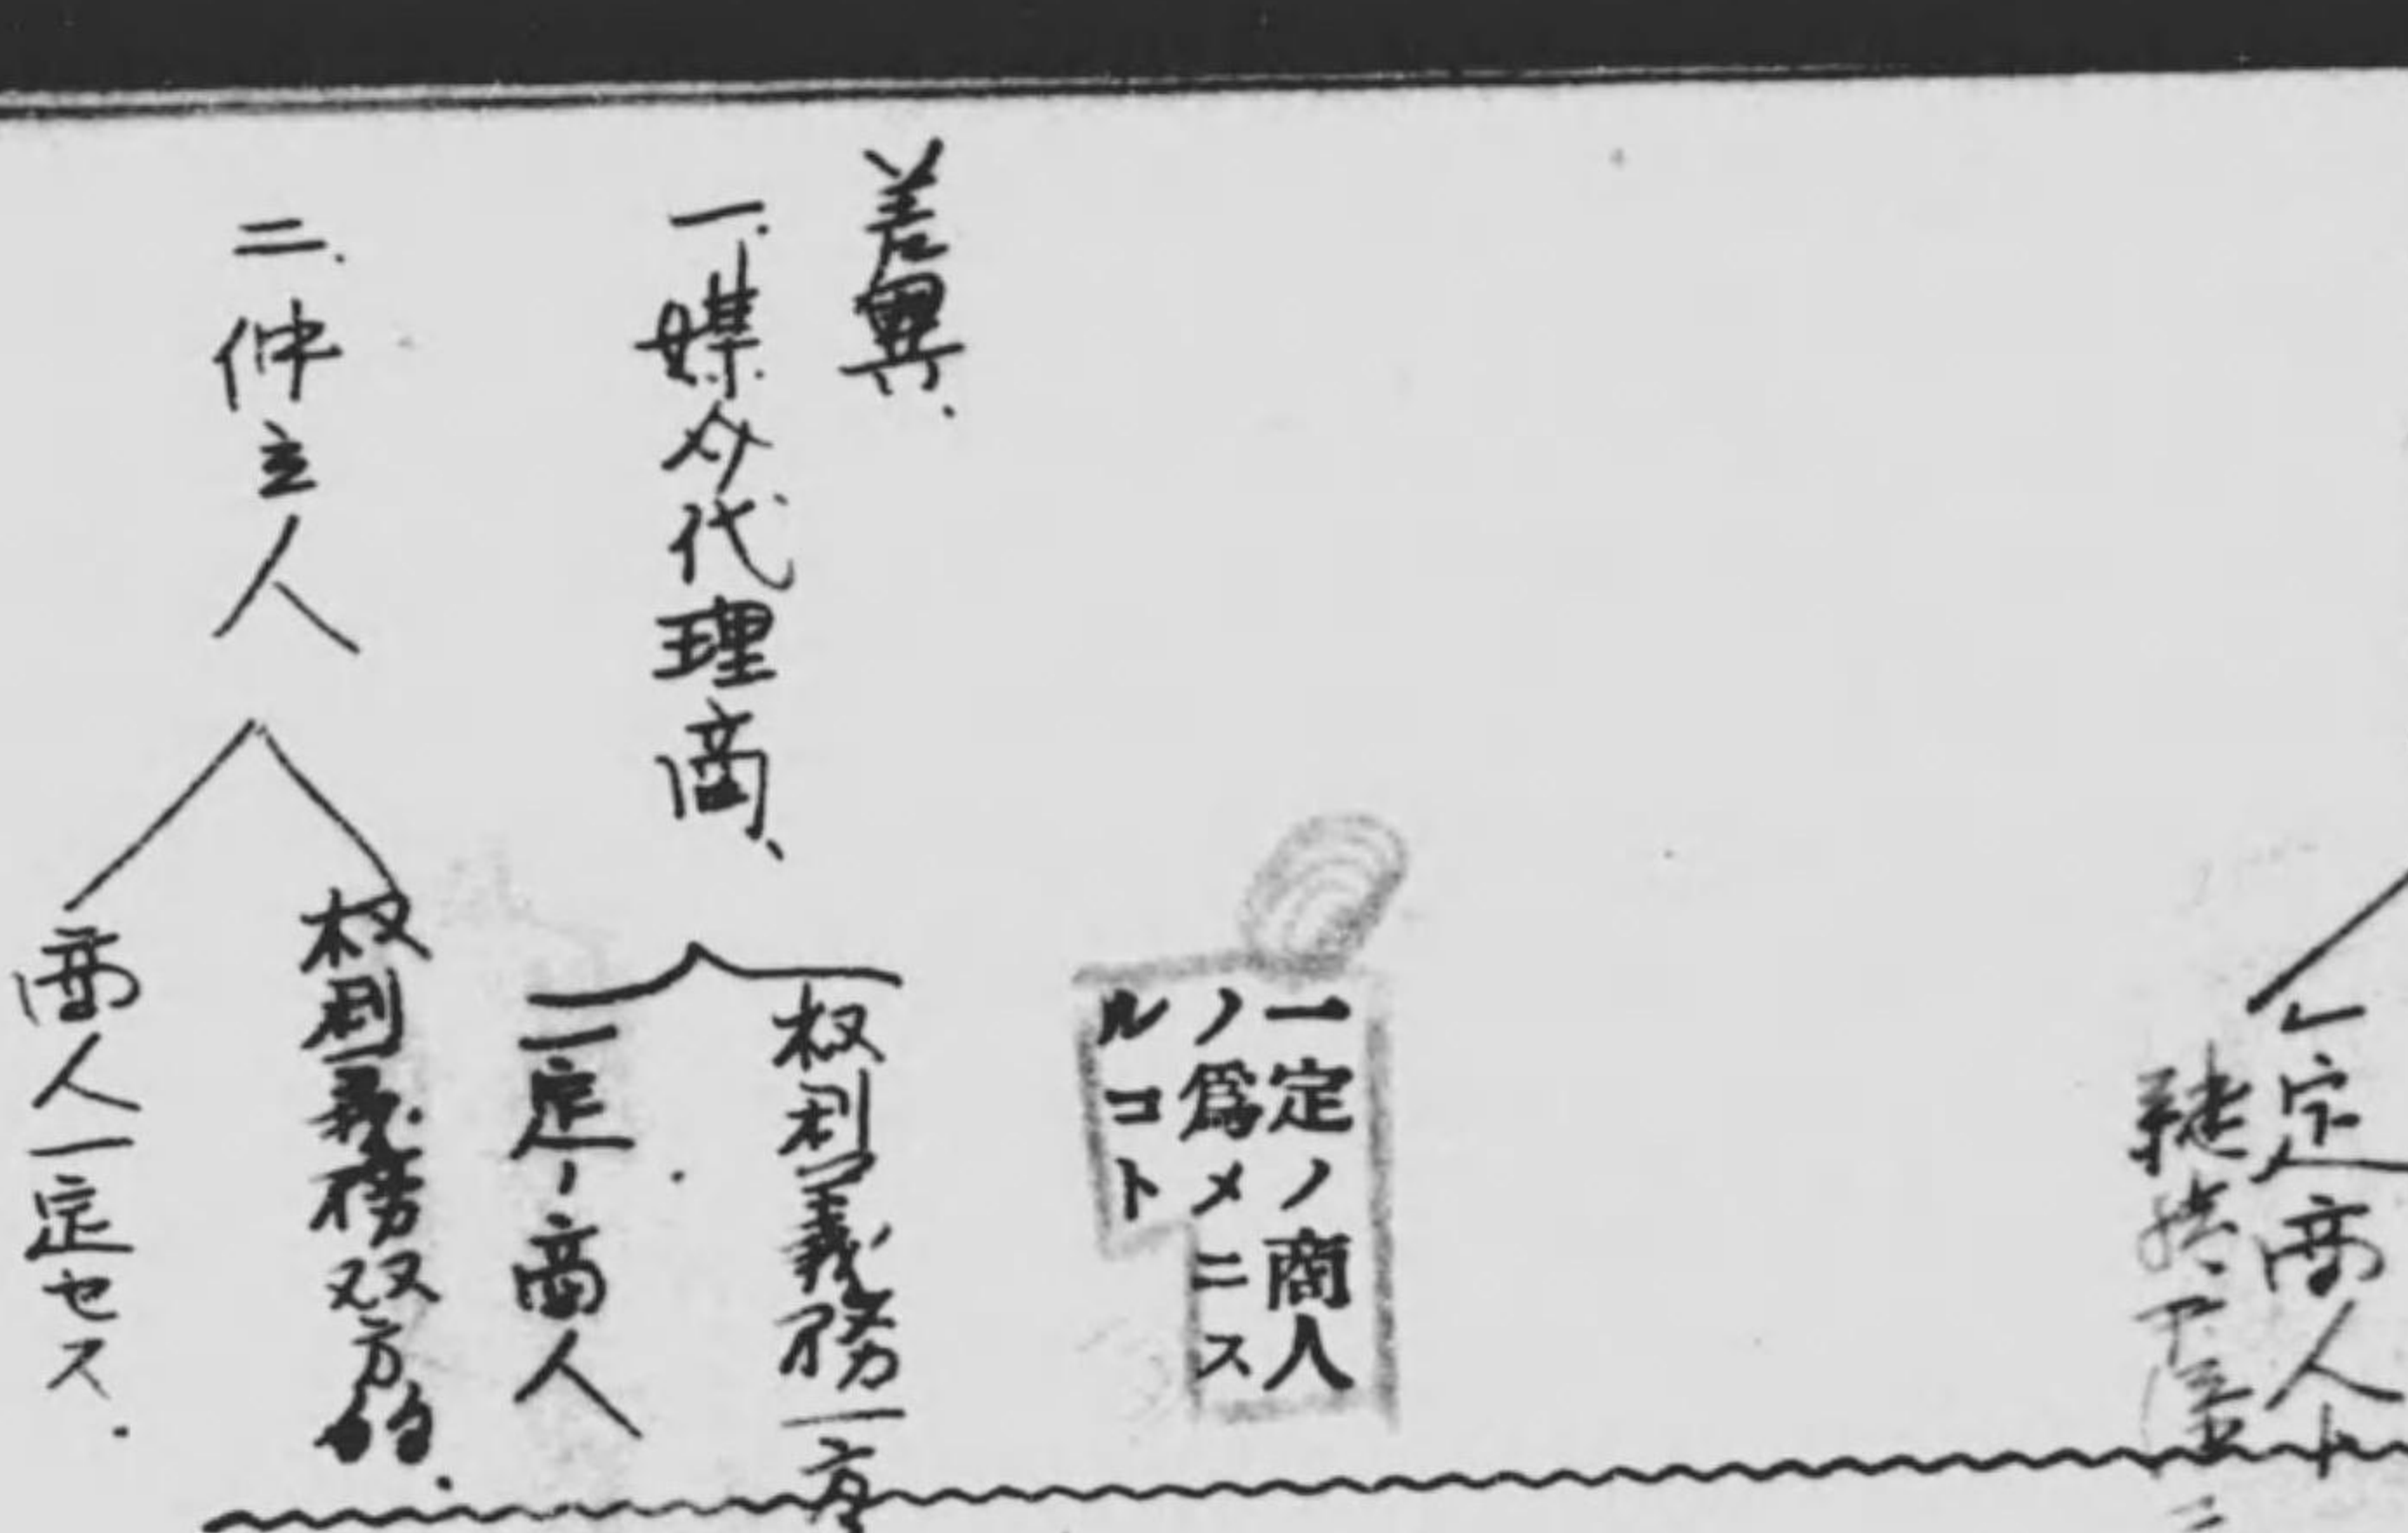 一定商人ト
一定ノ商人
ノ爲メニス
ルコト
差異.
一.媒介代理商、
権利義務一方
一定ノ商人
二.仲立人
権利義務双方的.
商人一定セス.